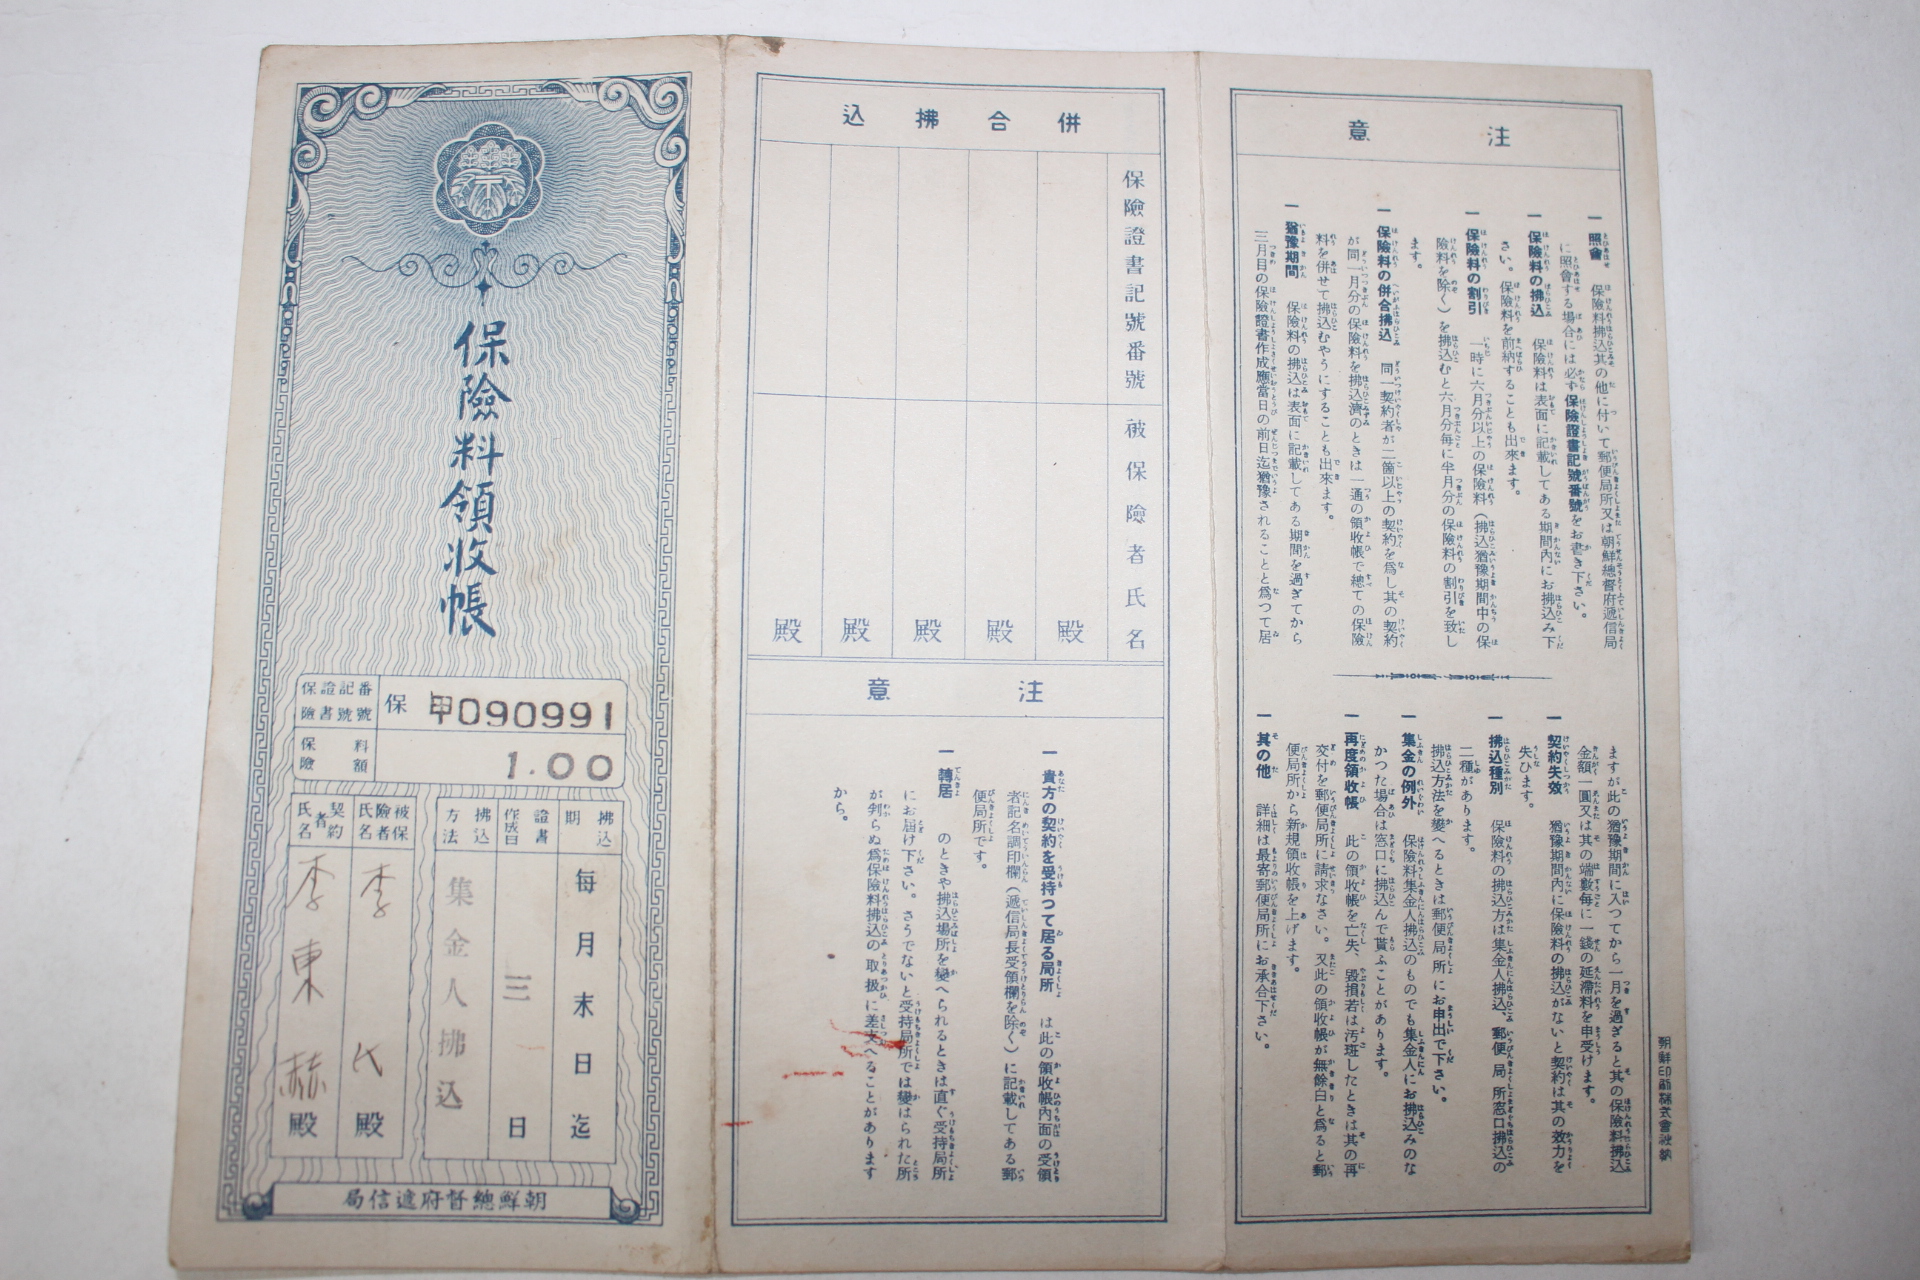 注意
一 照會 保險料拂込其の他に付いて郵便局所又は朝鮮總督府遞信局
に照會する場合には必ず保險證書記號番號をお書き下さい。
一 保險料の拂込 保險料は表面に記載してある期間內にお拂込み下
さい。保險料を前納することも出來ます。
一 保險料の割引 一時に六月分以上の保險料(拂込猶豫期間中の保
險料を除く)を拂込むと六月分每に半月分の保險料の割引を致し
ます。
一 保險料の併合拂込 同一契約者が二箇以上の契約を爲し其の契約
が同一月分の保險料を拂込濟のときは一通の領收帳で總ての保險
料を併せて拂込むやうにすることも出來ます。
一 猶豫期間 保險料の拂込は表面に記載してある期間を過ぎてから
三月目の保險證書作成應當日の前日迄猶豫されることと爲つて居
ますが此の猶豫期間に入つてから一月を過ぎると其の保險料拂込
金額一圓又は其の端數每に一錢の延滯料を申受けます。
一 契約失效 猶豫期間內に保險料の拂込がないと契約は其の效力を
失ひます。
一 拂込種別 保險料の拂込方は集金人拂込、郵便局所窓口拂込の
二種があります。
拂込方法を變へるときは郵便局所にお申出で下さい。
一 集金の例外 保險料集金人拂込のものでも集金人にお拂込みのな
かつた場合は窓口に拂込んで貰ふことがあります。
一 再度領收帳 此の領收帳を亡失、毀損若は汚斑したときは其の再
交付を郵便局所に請求なさい。又此の領收帳が無餘白と爲ると郵
便局所から新規領收帳を上げます。
一 其の他 詳細は最寄郵便局所にお承合下さい。
朝鮮印刷株式會社納
併合拂込
保險證書記號番號
被保險者氏名
殿
殿
殿
殿
殿
注意
一 貴方の契約を受持つて居る局所 は此の領收帳內面の受領
者記名調印欄(遞信局長受領欄を除く)に記載してある郵
便局所です。
一 轉居 のときや拂込場所を變へられるときは直ぐ受持局所
にお屆け下さい。さうでないと受持局所では變はられた所
が判らぬ爲保險料拂込の取扱に差支へることがあります
から。
保險料領收帳
保險證書記號番號
保 甲090991
保險料額
1.00
拂込期 每月末日迄
證書作成日 三日
拂込方法 集金人拂込
被保險者氏名 李 氏殿
契約者氏名 李東赫殿
朝鮮總督府遞信局